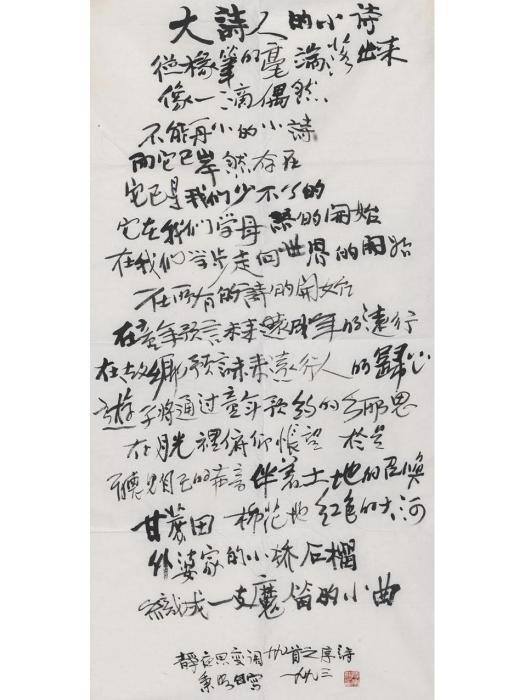 大詩人的小诗
從椽筆的毫端落出来
像一滴偶然
不能再小的小詩
而它已岸然存在
它已是我們少不了的
它在我们学母語的開始
在我们学步走向世界的開始
在所有的詩的開始
在童年预言未来遠成年的遠行
在故鄉预言未来遠行人的歸心
遊子將通过童年预约的乡思
在月光裡俯仰悵望 於是
聽見自己的聲音伴着土地的召喚
甘蔗田 棉花地 红色的大河
外婆家的小桥石榴
織成一支魔笛的小曲
靜夜思变调 廿九首之序詩
秉明自写 一九九三